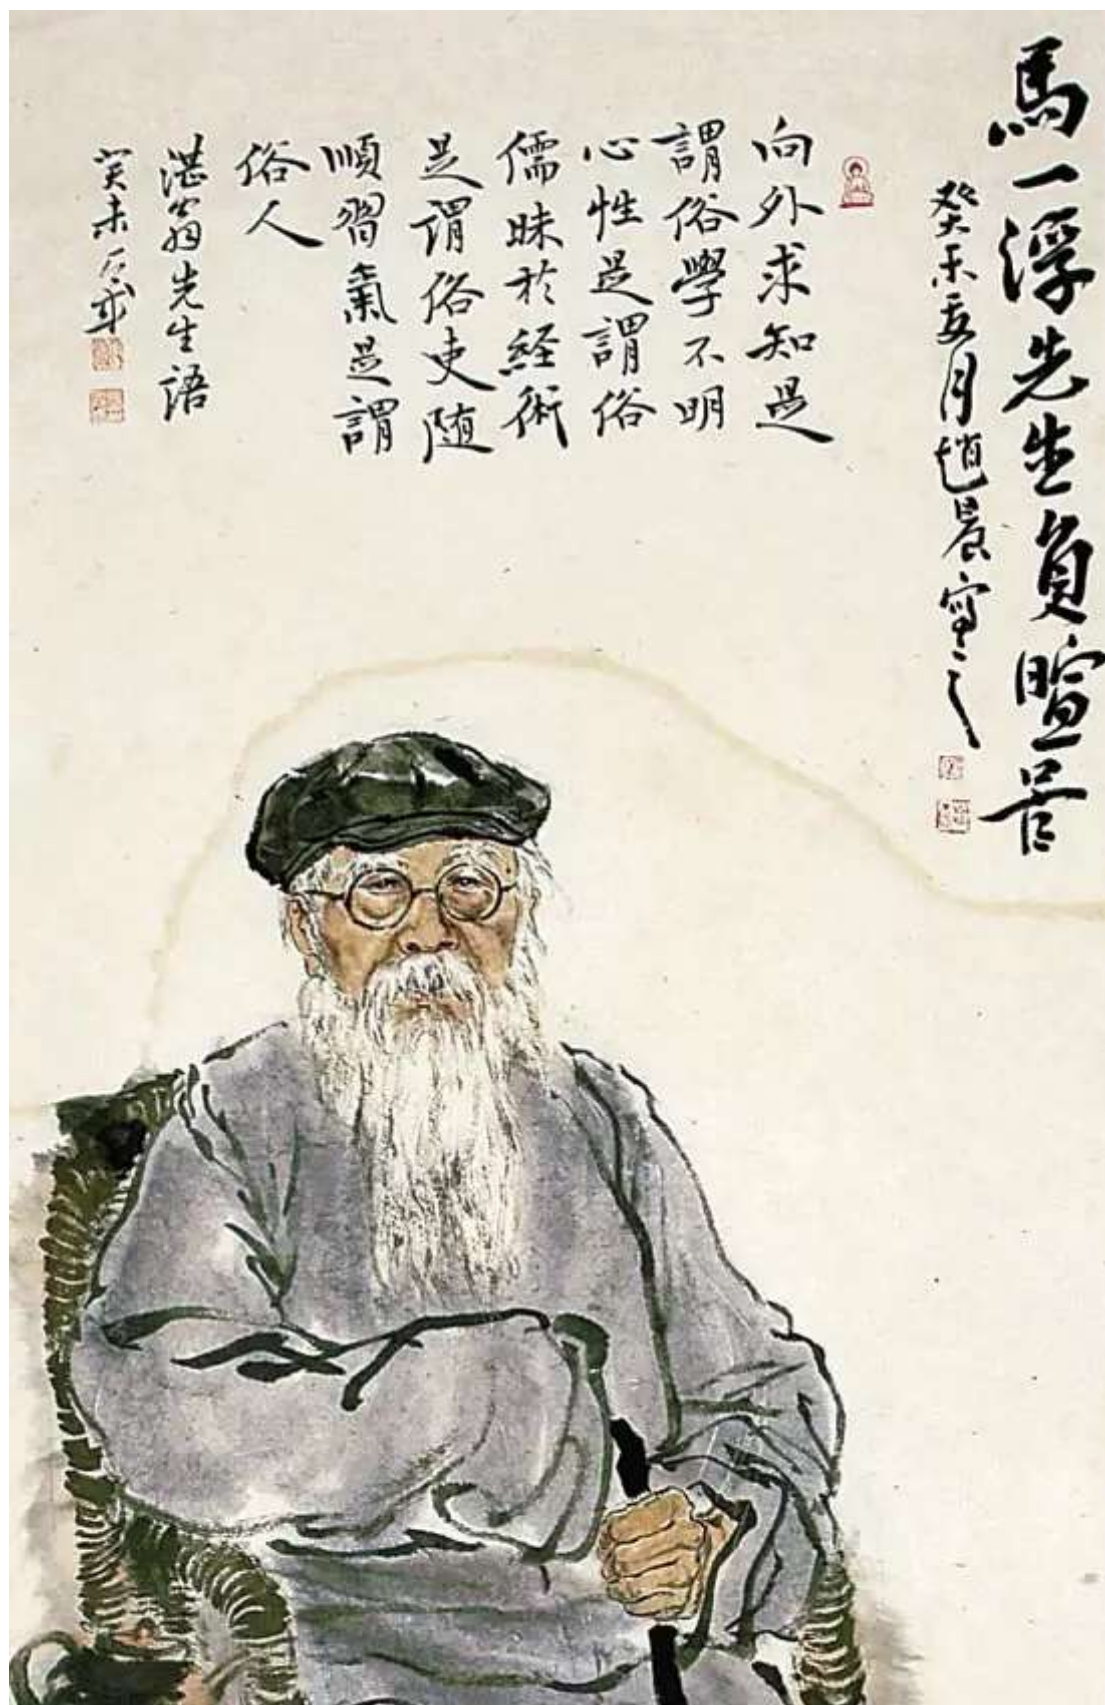 馬一浮先生負暄
癸未五月趙晨寫之
向外求知是
謂俗學不明
心性是謂俗
儒昧於経術
是谓俗吏随
順習氣是謂
俗人
湛翁先生語
癸未